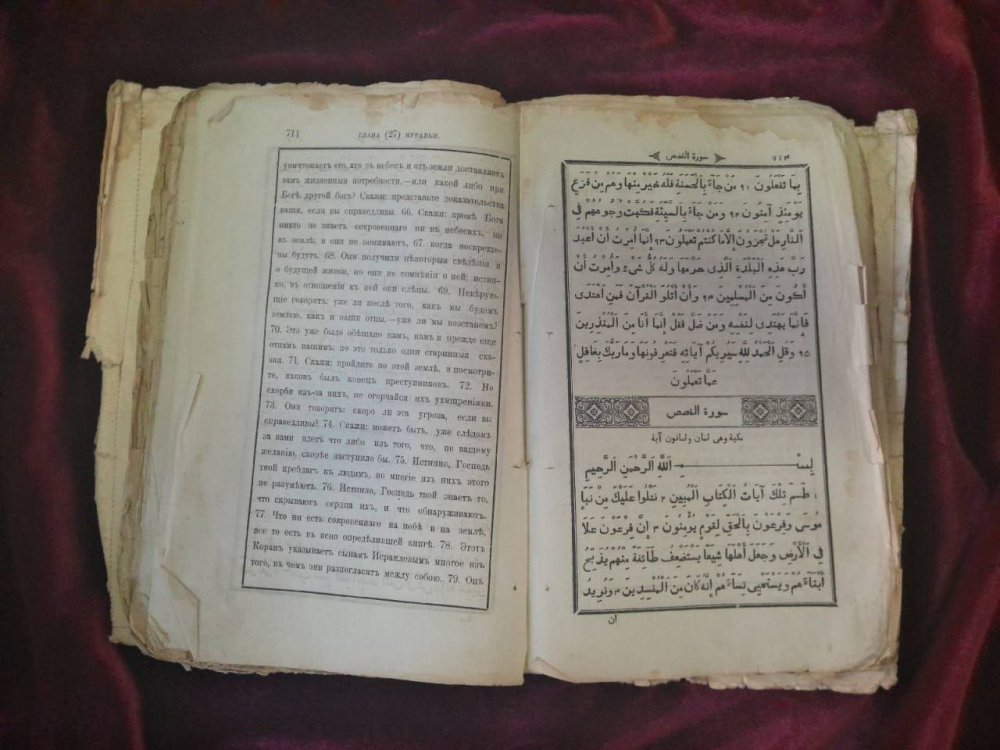 711
ГЛАВА (27) МУРАВЬИ.
уничтожаетъ его, кто съ небесъ и отъ земли доставляетъ
вамъ жизненныя потребности,—или какой либо при
Богѣ другой богъ? Скажи: представьте доказательства
ваши, если вы справедливы. 66. Скажи: кромѣ Бога
никто не знаетъ сокровеннаго ни на небесахъ, ни
на землѣ; и они не понимаютъ, 67. когда воскреше-
мы будутъ. 68. Они получили нѣкоторыя свѣдѣнія и
о будущей жизни, но они въ сомнѣніи о ней; истин-
но, въ отношеніи къ ней они слѣпы. 69. Невѣрую-
щіе говорятъ: уже ли послѣ того, какъ мы будемъ
землею, какъ и наши отцы,—уже ли мы возстанемъ?
70. Это уже было обѣщано намъ, намъ и прежде еще
отцамъ нашимъ; но это только одни старинныя ска-
зки. 71. Скажи: пройдите по этой землѣ, и посмотри-
те, каковъ былъ конецъ преступниковъ. 72. Не
скорби изъ-за нихъ, не огорчайся ихъ ухищреніями.
73. Они говорятъ: скоро ли эта угроза, если вы
справедливы? 74. Скажи: можетъ быть, уже слѣдомъ
за вами идетъ что либо изъ того, что, по вашему
желанію, скорѣе наступило бы. 75. Истинно, Господь
твой преблагъ къ людямъ, но многіе изъ нихъ этого
не разумѣютъ. 76. Истинно, Господь твой знаетъ то,
что скрываютъ сердца ихъ, и что обнаруживаютъ.
77. Что ни есть сокровеннаго на небѣ и на землѣ,
все то есть въ ясно опредѣляющей книгѣ. 78. Этотъ
Коранъ указываетъ сынамъ Исраилевымъ многое изъ
того, въ чемъ они разногласятъ между собою. 79. Онъ
سورة القصص
٧١٣
بِمَا تَفْعَلُونَ ٩١ مَنْ جَاءَ بِالْحَسَنَةِ فَلَهُ خَيْرٌ مِنْهَا وَهُمْ مِنْ فَزَعٍ
يَوْمَئِذٍ آمِنُونَ ٩٢ وَمَنْ جَاءَ بِالسَّيِّئَةِ فَكُبَّتْ وُجُوهُهُمْ فِي
النَّارِ هَلْ تُجْزَوْنَ إِلَّا مَا كُنْتُمْ تَعْمَلُونَ ٩٣ إِنَّمَا أُمِرْتُ أَنْ أَعْبُدَ
رَبَّ هَذِهِ الْبَلْدَةِ الَّذِي حَرَّمَهَا وَلَهُ كُلُّ شَيْءٍ وَأُمِرْتُ أَنْ
أَكُونَ مِنَ الْمُسْلِمِينَ ٩٤ وَأَنْ أَتْلُوَا الْقُرْآنَ فَمَنِ اهْتَدَى
فَإِنَّمَا يَهْتَدِى لِنَفْسِهِ وَمَنْ ضَلَّ فَقُلْ إِنَّمَا أَنَا مِنَ الْمُنْذِرِينَ
٩٥ وَقُلِ الْحَمْدُ لِلَّهِ سَيُرِيكُمْ آيَاتِهِ فَتَعْرِفُونَهَا وَمَا رَبُّكَ بِغَافِلٍ
عَمَّا تَعْمَلُونَ
سورة القصص
مكية وهي ثمان وثمانون آية
بِسْمِ اللَّهِ الرَّحْمَنِ الرَّحِيمِ
١ طسم تِلْكَ آيَاتُ الْكِتَابِ الْمُبِينِ ٢ نَتْلُوا عَلَيْكَ مِنْ نَبَإِ
مُوسَى وَفِرْعَوْنَ بِالْحَقِّ لِقَوْمٍ يُؤْمِنُونَ ٣ إِنَّ فِرْعَوْنَ عَلَا
فِي الْأَرْضِ وَجَعَلَ أَهْلَهَا شِيَعًا يَسْتَضْعِفُ طَائِفَةً مِنْهُمْ يُذَبِّحُ
أَبْنَاءَهُمْ وَيَسْتَحْيِي نِسَاءَهُمْ إِنَّهُ كَانَ مِنَ الْمُفْسِدِينَ ٤ وَنُرِيدُ
ان